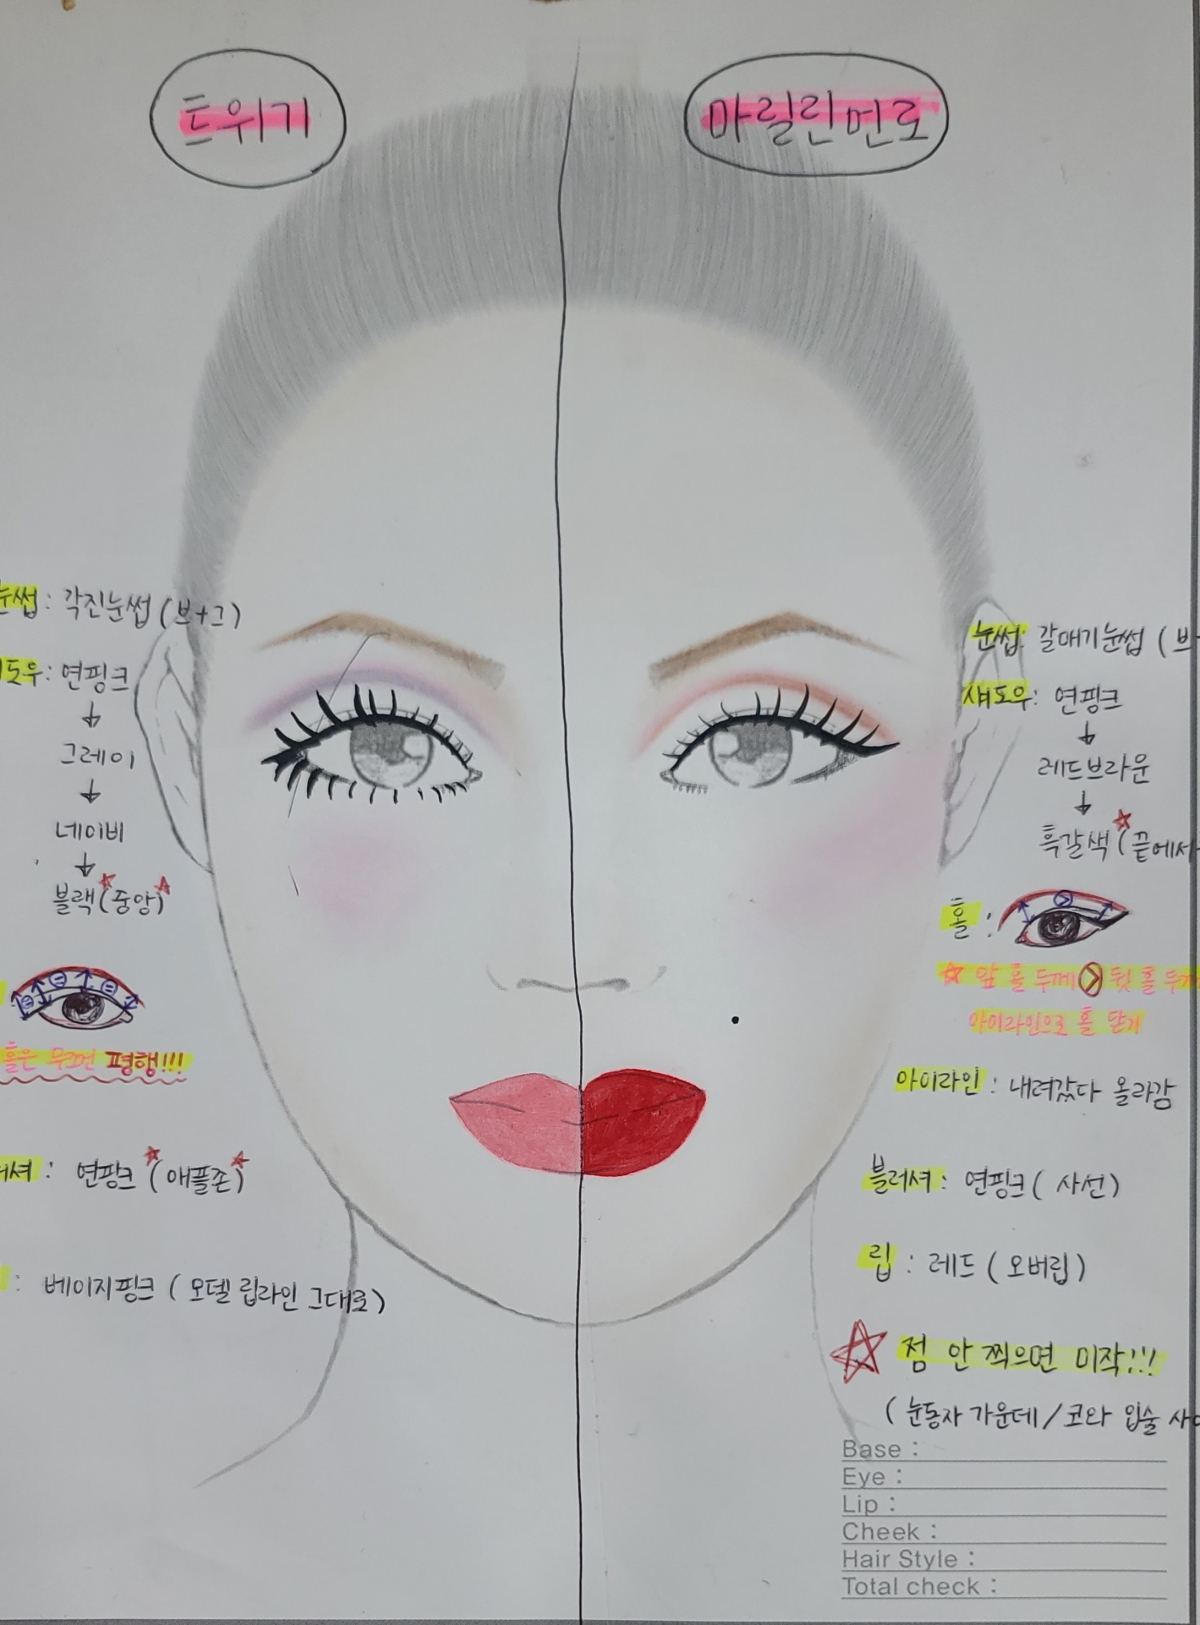 트위기
마릴린먼로
눈썹 : 각진눈썹 (브+그)
도우 : 연핑크
↓
그레이
↓
네이비
↓
블랙 (중앙)
홀은 무조건 평행!!!
셔 : 연핑크 (애플존)
: 베이지핑크 ( 모델 립라인 그대로)
눈썹: 갈매기눈썹 ( 브
섀도우: 연핑크
↓
레드브라운
↓
흑갈색 (끝에서
홀 :
☆ 앞 홀 두께 > 뒷 홀 두께
아이라인으로 홀 닫기
아이라인 : 내려갔다 올라감
블러셔 : 연핑크 ( 사선)
립 : 레드 ( 오버립)
☆ 점 안 찍으면 미작!!!
( 눈동자 가운데 / 코와 입술 사이
Base :
Eye :
Lip :
Cheek :
Hair Style :
Total check :